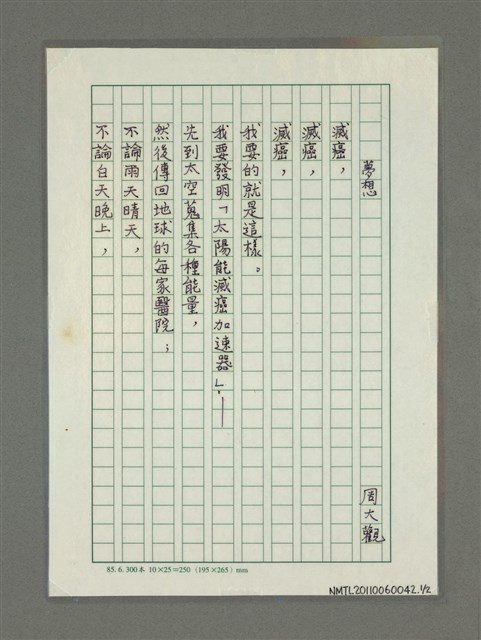 夢想 周大觀
滅癌，
滅癌，
滅癌，
我要的就是這樣。
我要發明「太陽能滅癌加速器」，——
先到太空蒐集各種能量，
然後傳回地球的每家醫院；
不論雨天晴天，
不論白天晚上，
85. 6. 300本 10×25=250 (195×265) mm
NMTL20110060042.1/2